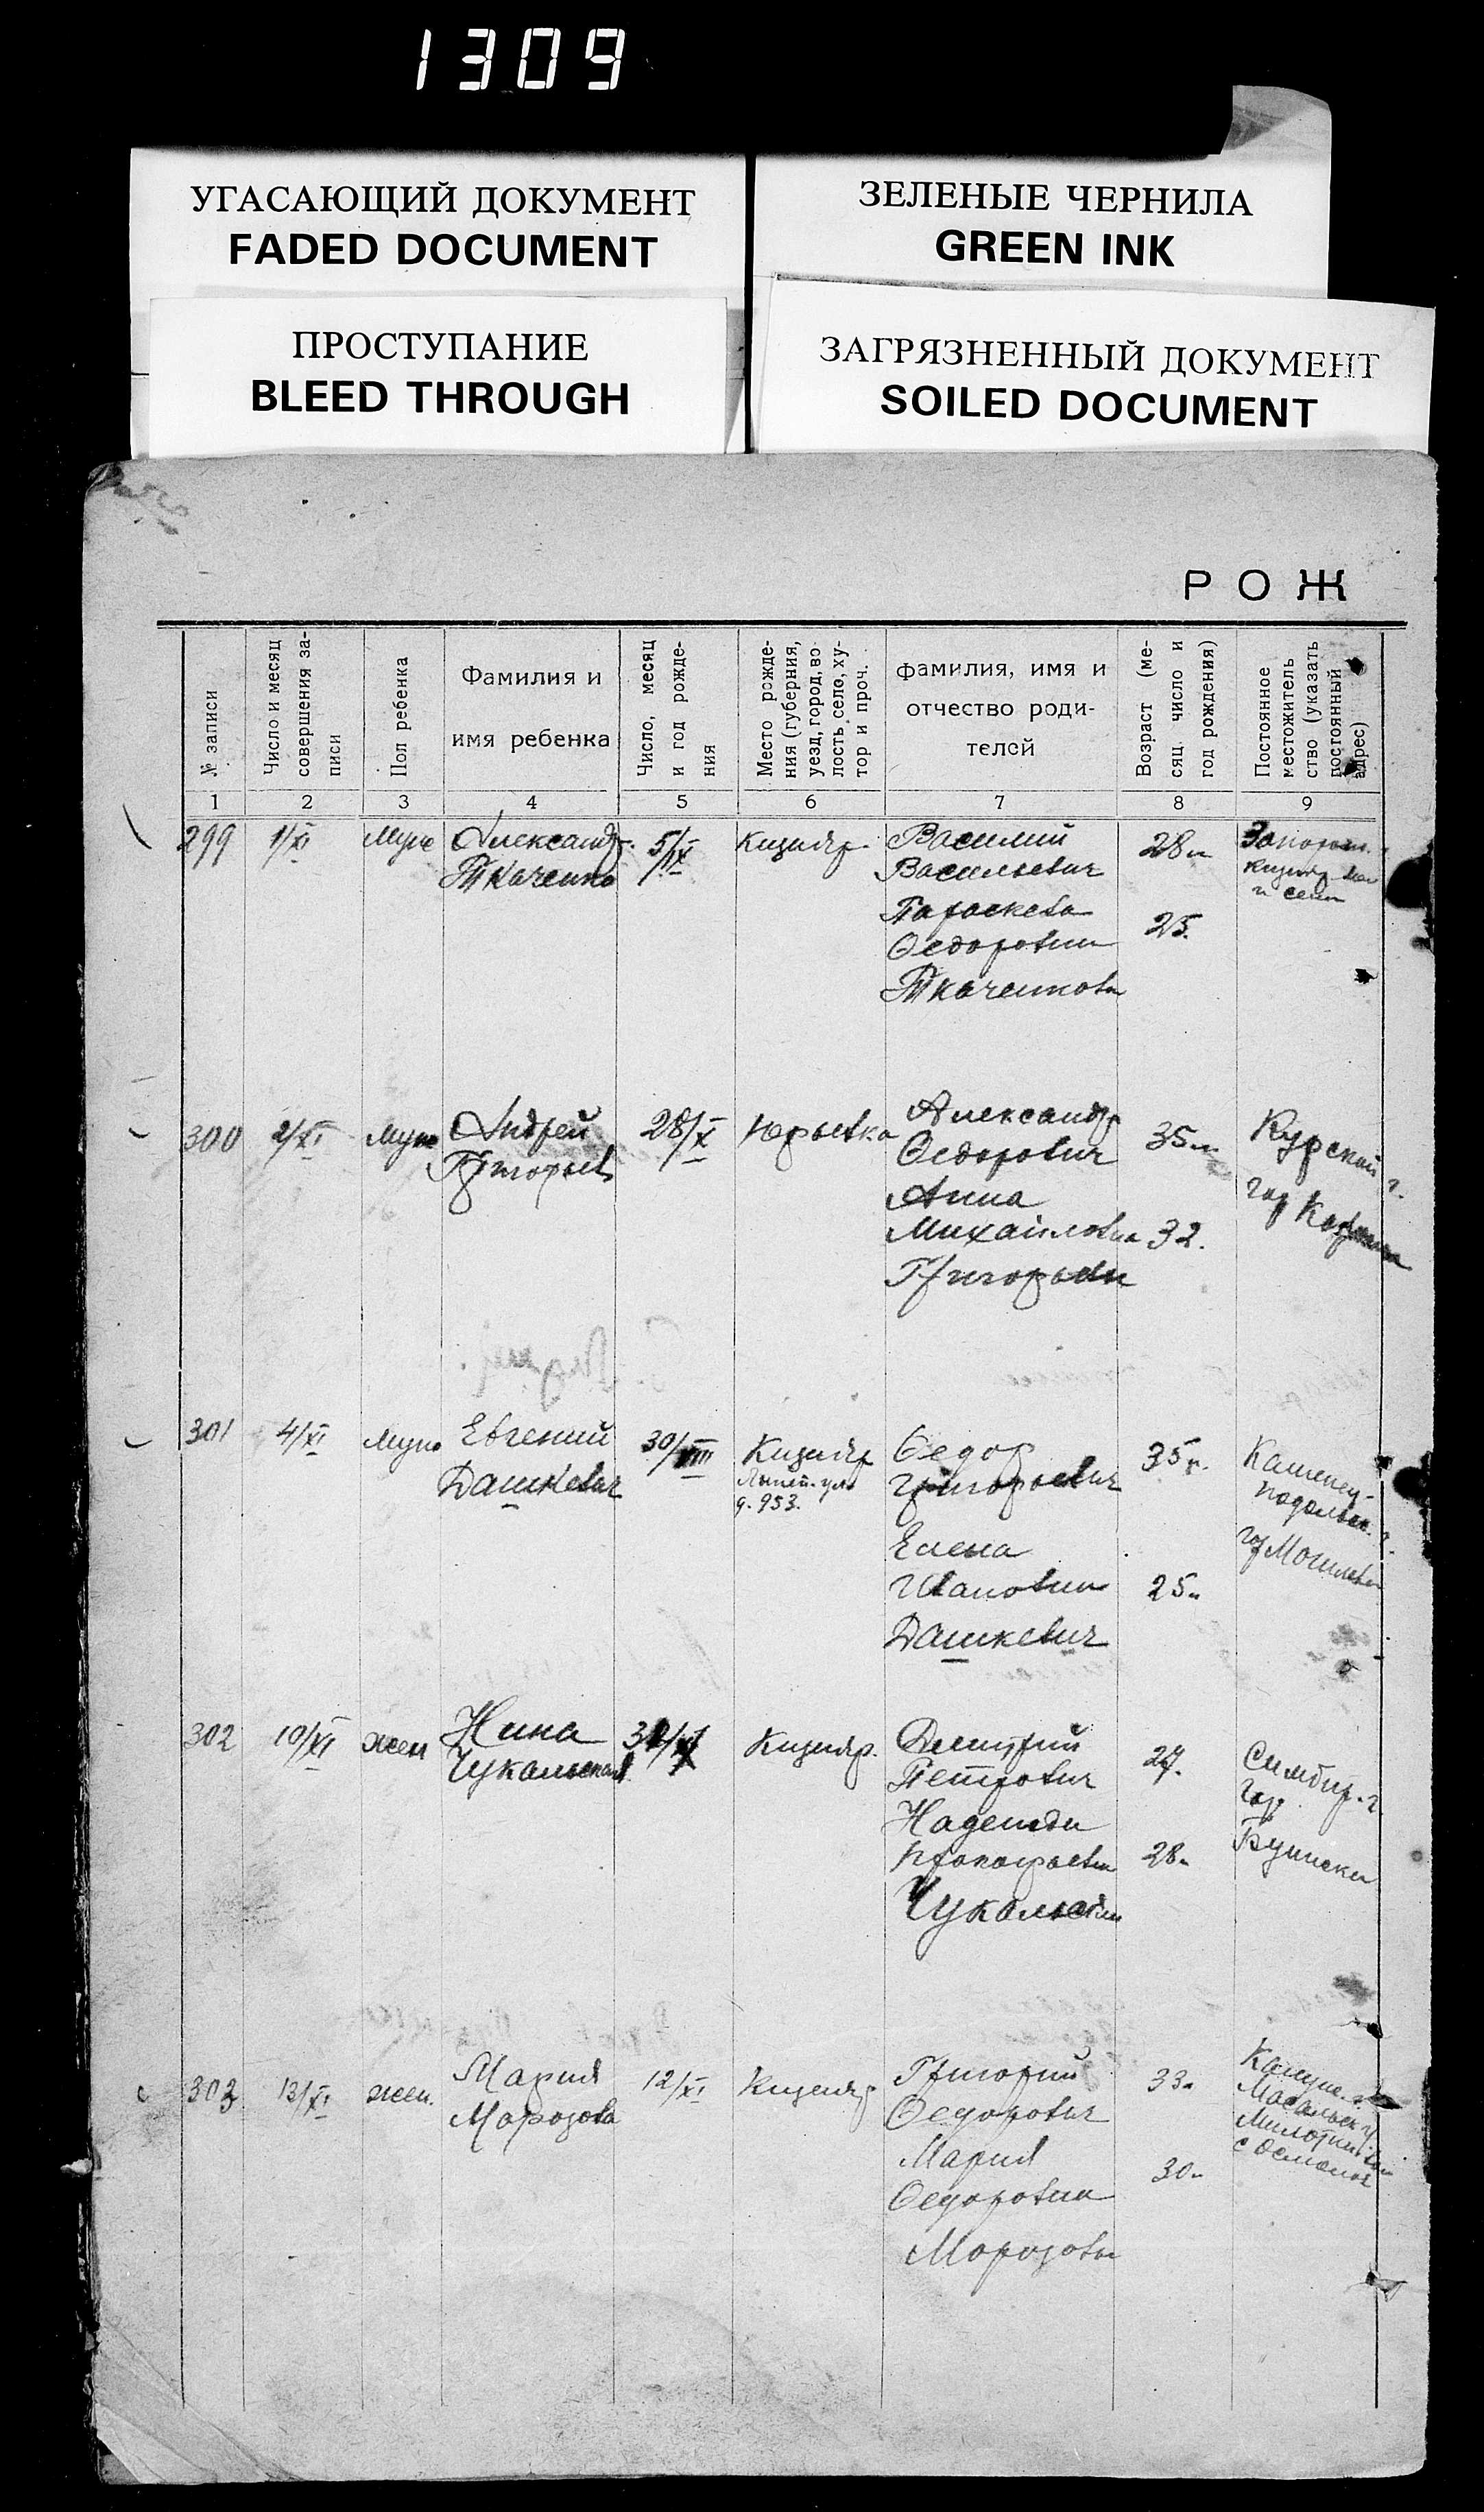 1309
УГАСАЮЩИЙ ДОКУМЕНТ
FADED DOCUMENT
ЗЕЛЕНЫЕ ЧЕРНИЛА
GREEN INK
ПРОСТУПАНИЕ
BLEED THROUGH
ЗАГРЯЗНЕННЫЙ ДОКУМЕНТ
SOILED DOCUMENT
РОЖ
№ записи
Число и месяц
совершения за-
писи
Пол ребенка
Фамилия и
имя ребенка
Число, месяц
и год рожде-
ния
Место рожде-
ния (губерния,
уезд, город, во
лость село, ху-
тор и проч.
фамилия, имя и
отчество роди-
телей
Возраст (ме-
сяц. число и
год рождения)
Постоянное
местожитель
ство (указать
постоянный
адрес)
1 2 3 4 5 6 7 8 9
299
1/XI
Муж
Александр.
Ткаченко
5/IX
Кизляр.
Василий
Васильевич
Параскева
Федоровна
Ткаченкова
28
25.
300
2/XI
Муж
Андрей
Григорьев
28/X
Юрьевка
Александр
Федорович
Анна
Михайловна
Григорьева
35
32.
Курской г.
гор
301
4/XI
Муж
Евгений
Дашкевич
30/VIII
Кизляр
д. 953.
Федор
Григорьевич
Елена
Ивановна
Дашкевич
35г.
25
Каменец-
подольск. г.
гор Могилев
302
10/XI
жен
Нина
Чукальская
Кизляр.
Дмитрий
Петрович
Надежда
Прокофьевна
27.
28
Симбир. г.
гор.
Буинска
303
13/XI
жен.
Мария
Морозова
12/XI
Кизляр
Григорий
Федорович
Мария
Федоровна
Морозовы
33
30
Калуж.
Масальск